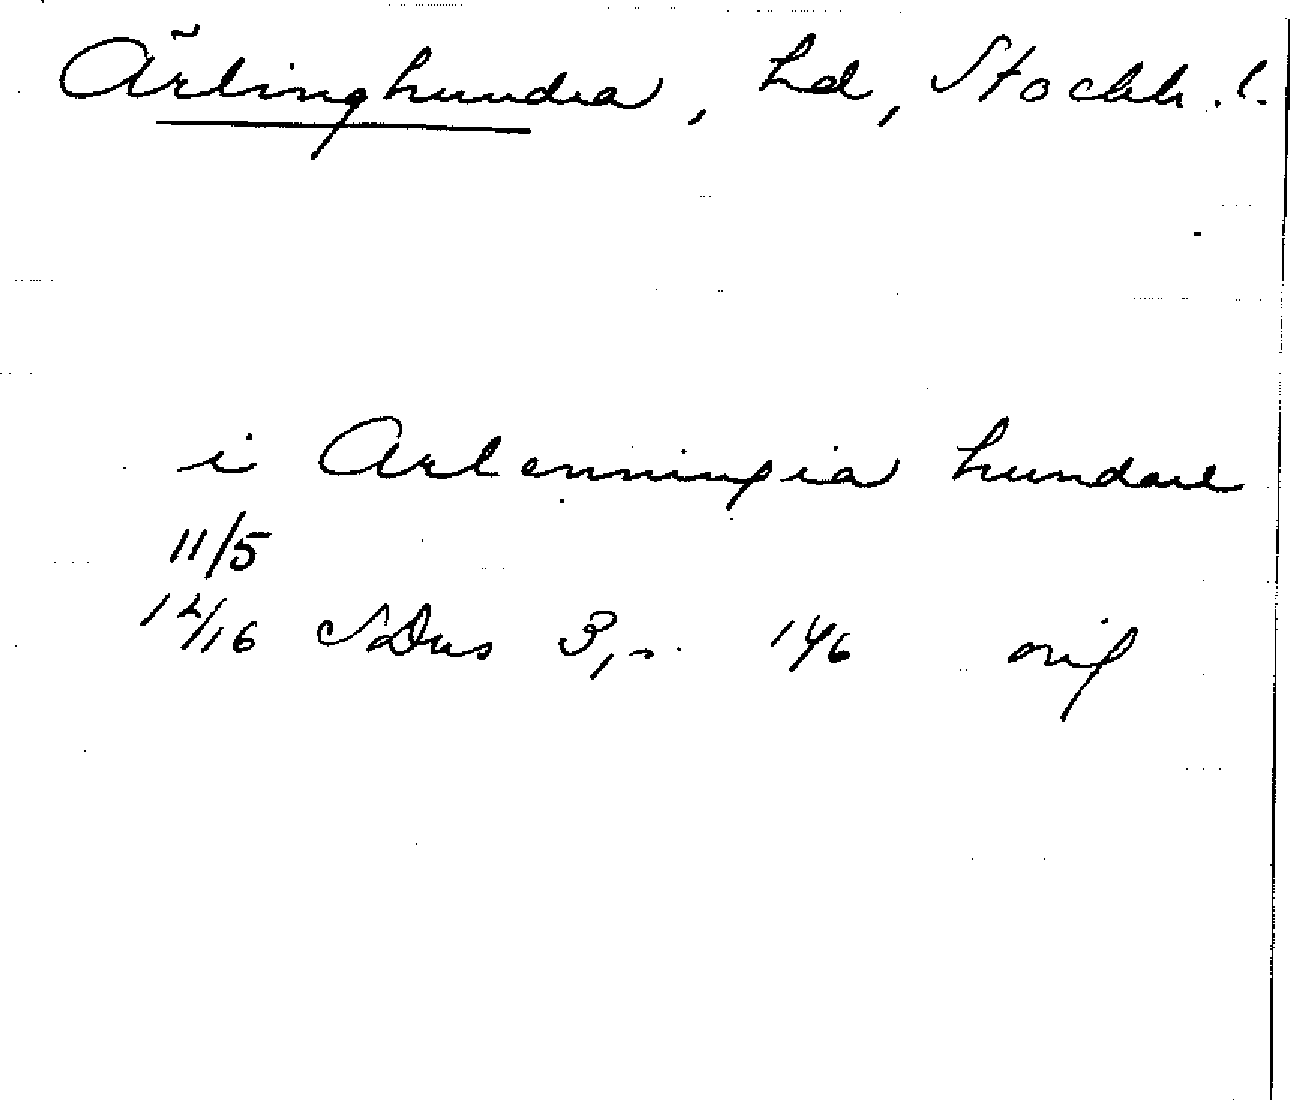 Ärlinghundra, hd, Stockh. l.
i Arlenningia hundare
11/5
12/16 SDns 3,
orig